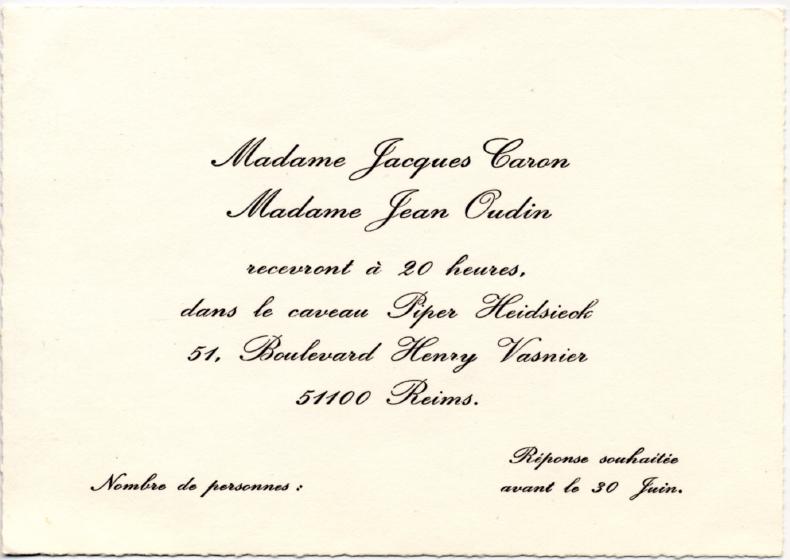 Madame Jacques Caron
Madame Jean Oudin
recevront à 20 heures,
dans le caveau Piper Heidsieck
51, Boulevard Henry Vasnier
51100 Reims.
Réponse souhaitée
Nombre de personnes :
avant le 30 Juin.